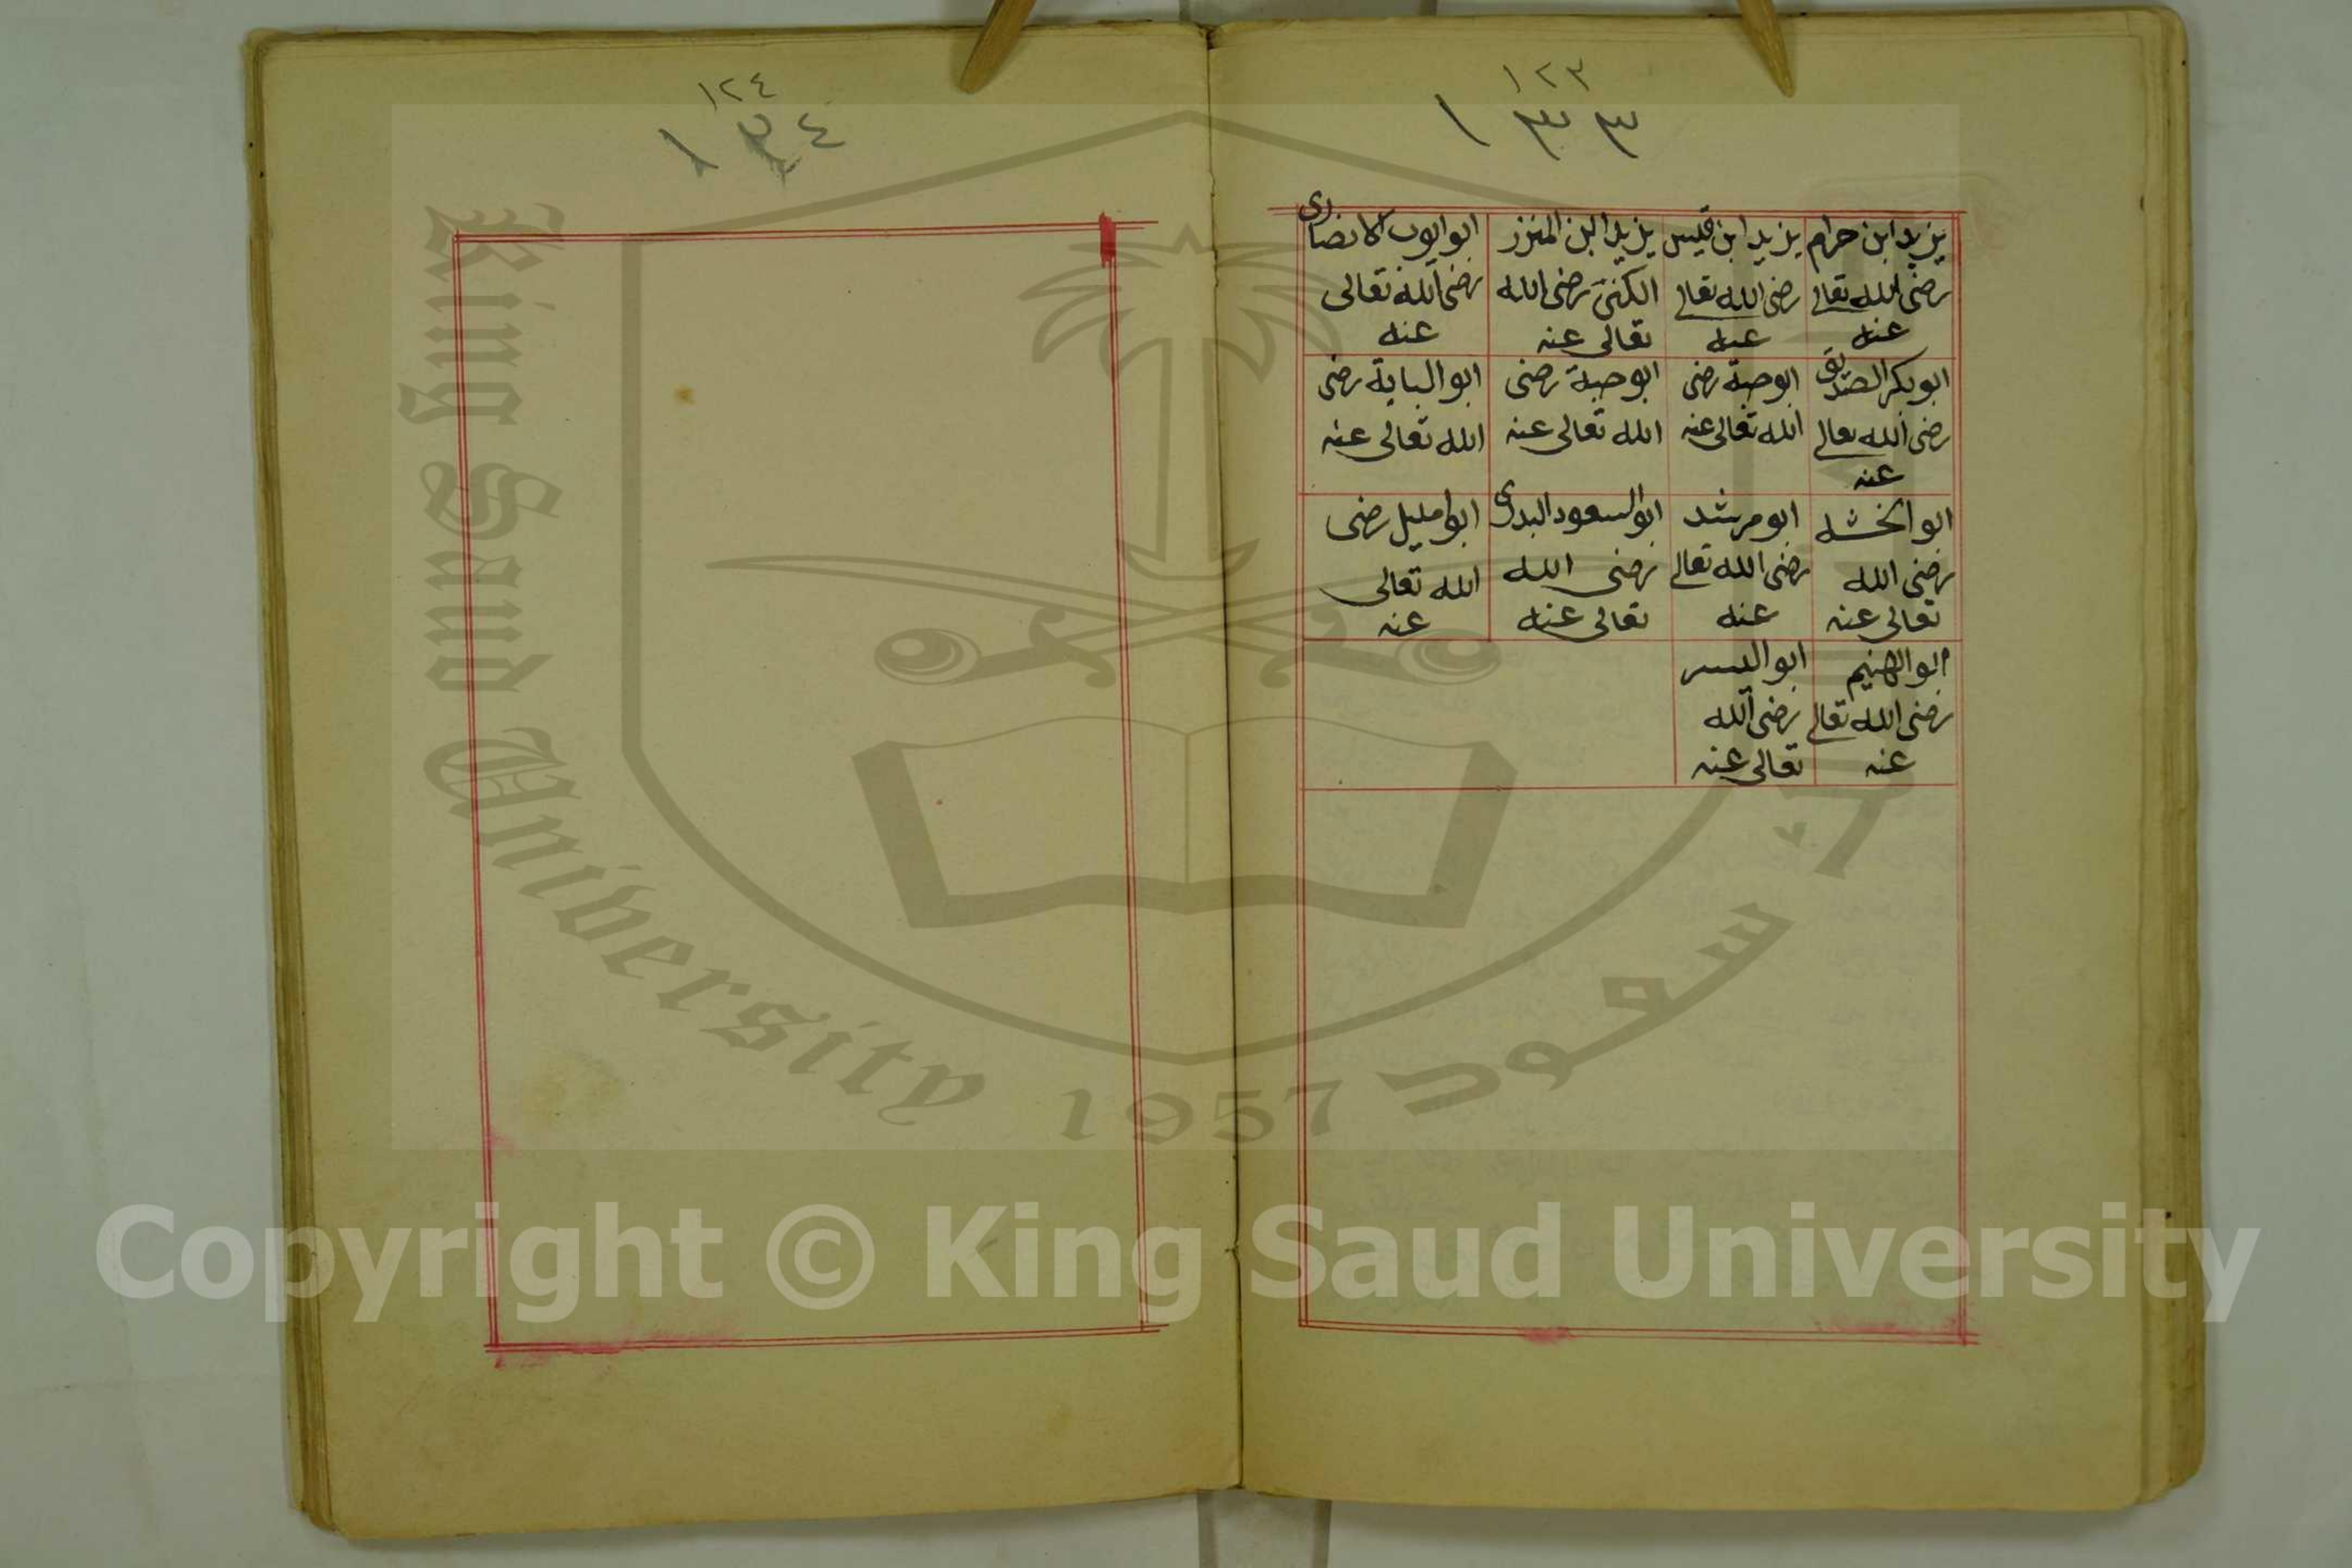 ١٢٣
١٣٣
يزيد ابن حرام
رضى الله تعالى
عنه
يزيد ابن قيس
رضى الله تعالى
عنه
يزيد ابن المنزر
رضى الله
تعالى عنه
ابو ايوب الانصارى
رضى الله تعالى
عنه
ابو بكر الصديق
رضى الله تعالى
عنه
ابو حبة رضى
الله تعالى عنه
ابو حبة رضى
الله تعالى عنه
ابو البابة رضى
الله تعالى عنه
ابو
رضى الله
تعالى عنه
ابو مرشد
رضى الله تعالى
عنه
ابو السعود البدرى
رضى الله
تعالى عنه
ابو مليل رضى
الله تعالى
عنه
ابو الهثيم
رضى الله تعالى
عنه
ابو اليسر
رضى الله
تعالى عنه
١٢٤
١٣٤
King Saud University
1957
سعود
Copyright © King Saud University